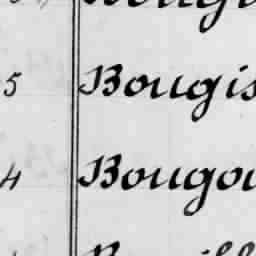 5 Bougis
4 Bougou